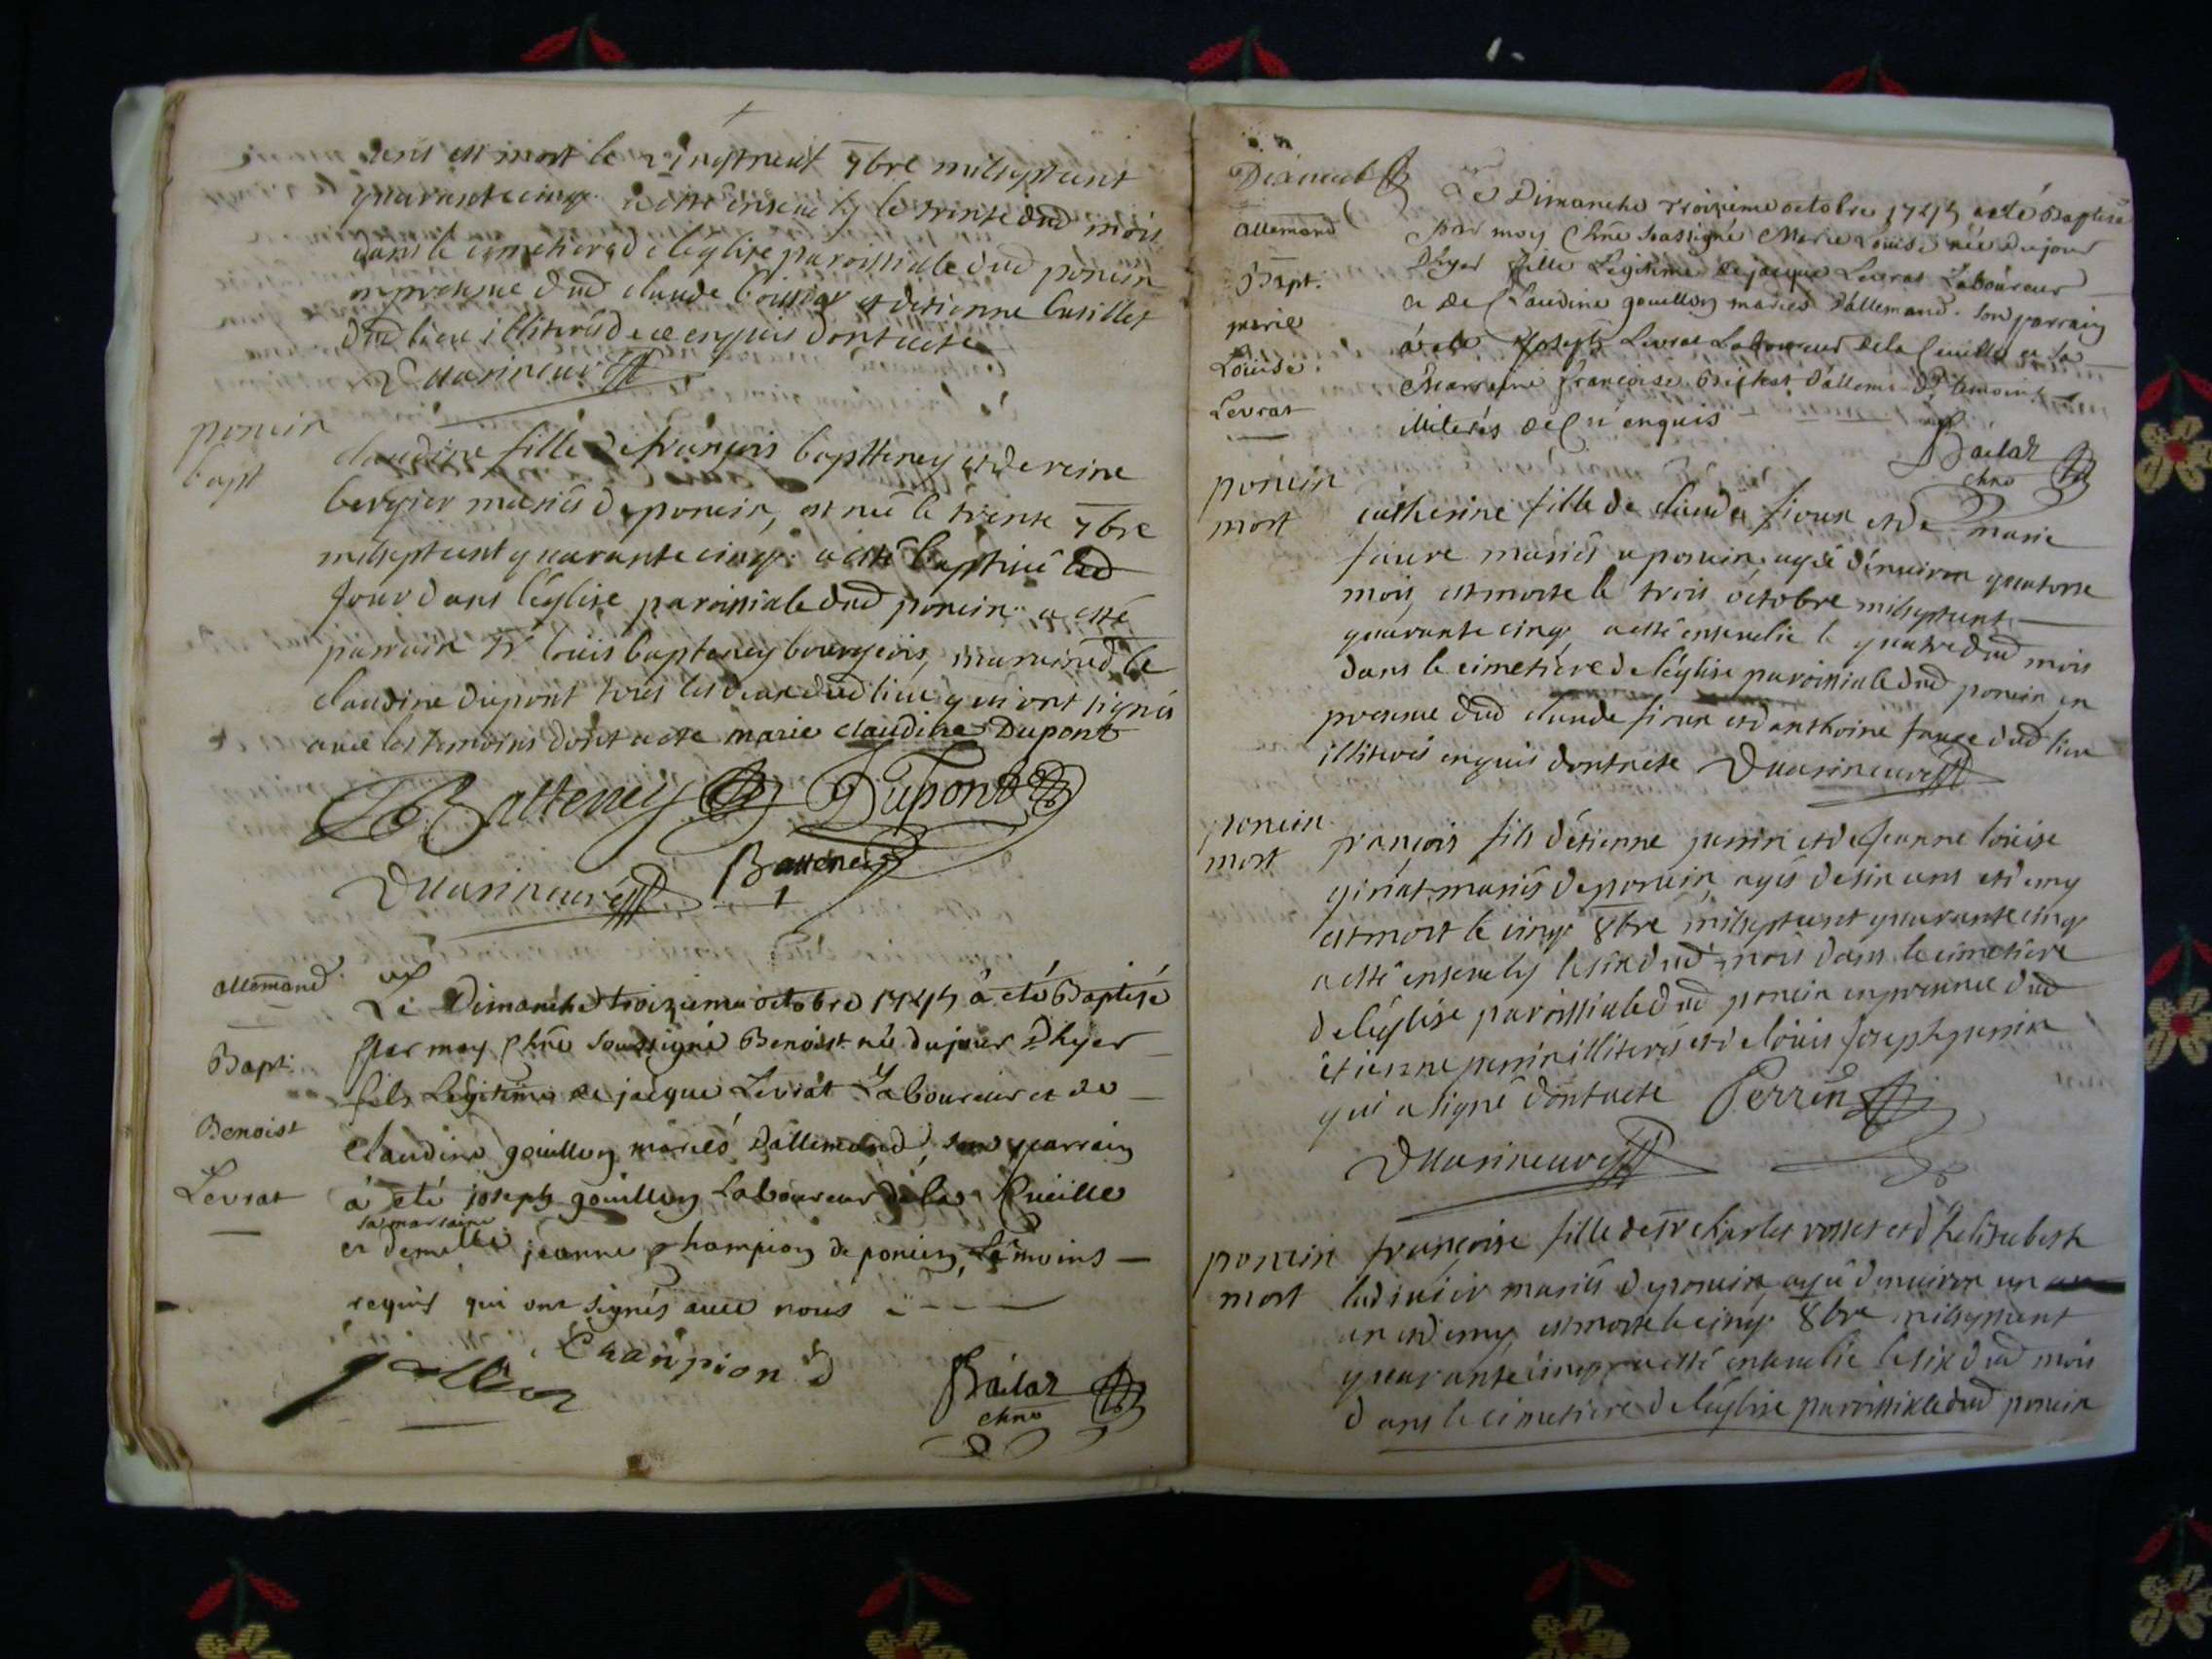 ans est mort le vingtneuf 7bre milseptcent
quarantecinq. a esté enseuely le trente dud mois
dans le cimetiere de léglise paroissiale dud poncin
en presence dud claude et detienne
dud lieu illiterés de ce enquis dont acte
poncin
bapt
claudine fille de françois baptteney et de reine
bergier mariés de poncin, est née le trente 7bre
milseptcent quarante cinq. a esté baptisée led
Jour dans léglise paroissiale dud poncin. a esté
parrain Sr louis bapteney bourgeois, marraine dlle
claudine dupont tous les deux dud lieu qui ont signés
avec les temoins dont acte marie claudine Dupont
Batteney Dupont
Batteney
allemand
Bapt:
Benoist
Levrat
Le Dimanche troizieme octobre 1745 a eté Baptisé
par moy chne soussigné Benoist né du jour d'hyer
fils Légitime de jacque Levrat Laboureur et de
Claudine gouillon mariés d'allemand, son parrain
à eté joseph gouillon Laboureur de la Cueille
sa marraine
et demelle jeanne champion de poncin, témoins —
requis qui ont signés avec nous
Champion
Bailat
chne
Dixneuf
allemand
Bapt.
marie
Louise
Levrat
Le Dimanche troizieme octobre 1745 a eté Baptisée
par moy chne soussigné Marie Louise née du jour
d'hyer fille Légitime de jacque Levrat Laboureur
et de Claudine gouillon mariés d'allemand. son parrain
à eté Joseph Levrat Laboureur de la Cueille et sa
Marraine françoise d'allemand temoins
illiterés de ce enquis
Bailat
chne
poncin
mort
catherine fille de claude et de marie
faure mariés a poncin, agée d'environ quatorse
mois, est morte le trois octobre milseptcent
quarante cinq, a esté enseuelie le quatre dud mois
dans le cimetiere de léglise paroissiale dud poncin en
presence dud claude et danthoine dud lieu
illiterés enquis dont acte
poncin
mort
françois fils d'étienne perrin et de Jeanne louise
ginat mariés de poncin, agés de six ans et demy
est mort le cinq 8bre milseptcent quarantecinq
a esté enseuely le six dud mois dans le cimetiere
de léglise paroissiale dud poncin en presence dud
étienne perrin illiterés et de louis Joseph perrin
qui a signé dont acte Perrin
poncin
mort
françoise fille de Sr charles rosset et dhelisabeth
mariés de poncin agée denviron un
an et demy, est morte le cinq 8bre milseptcent
quarantecinq, a esté enseuelie le six dud mois
dans le cimetiere de léglise paroissiale dud poncin